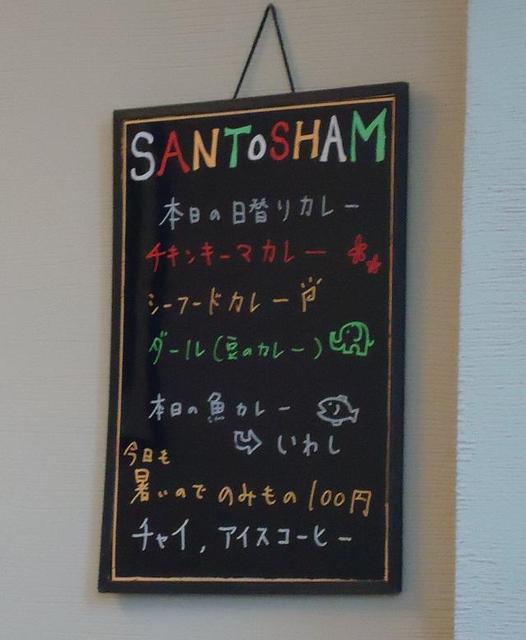 SANToSHAM
本日の日替りカレー
チキンキーマカレー
シーフードカレー
ダール(豆のカレー)
本日の魚カレー
いわし
今日も
暑いので のみもの100円
チャイ, アイスコーヒー